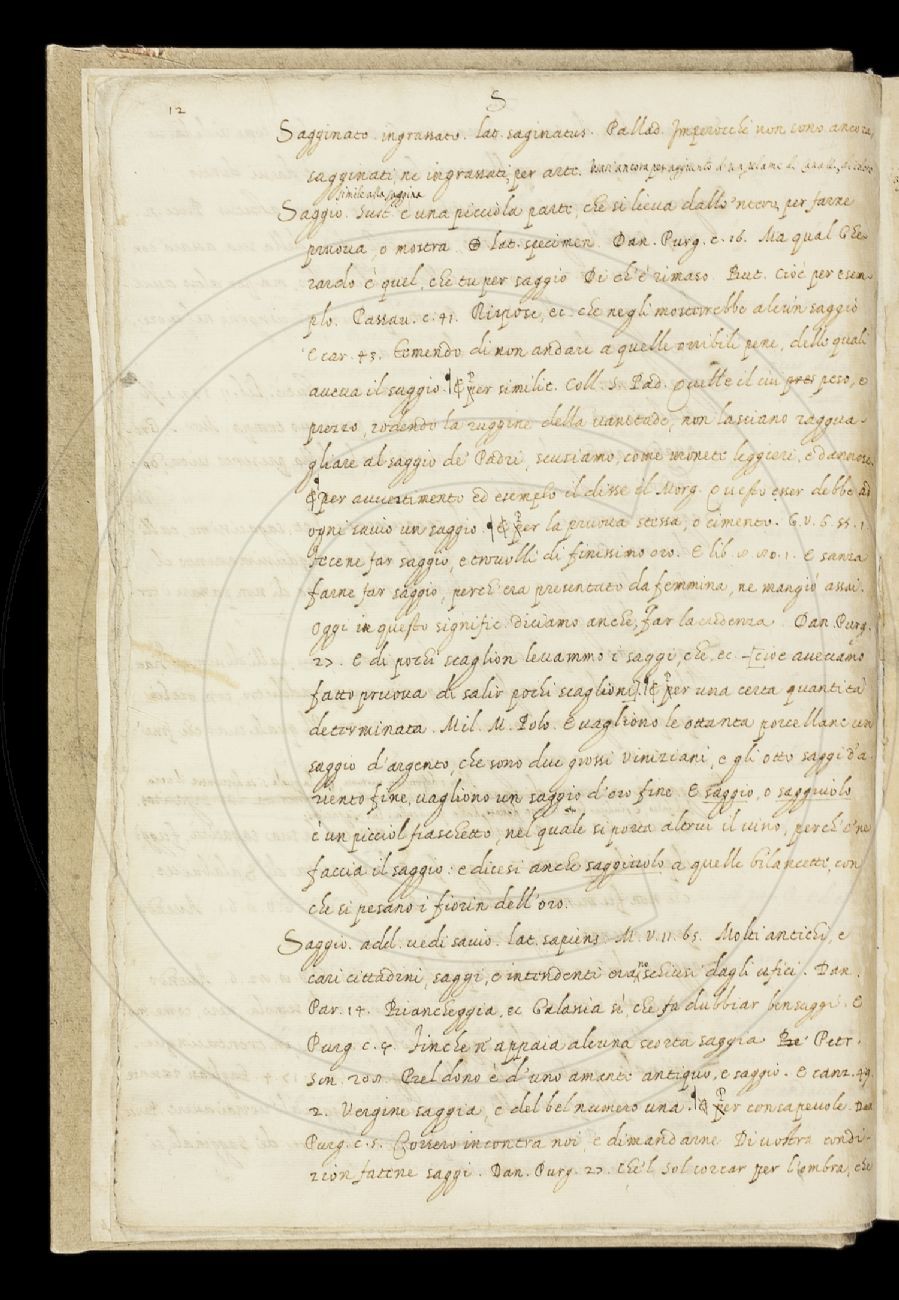 12
S
Sagginato. ingrassato. lat. saginatus. Pallad. Imperocchè non sono ancora
sagginati, ne ingrassati, per arte.
simile alla saggina
Saggio. Sust. è una picciola parte, che si lieva dallo 'ntero, per farne
pruova, o mostra. lat. specimen. Dan. Purg. c. 16. Ma qual Ghe-
rardo è quel, che tu per saggio Di ch' è rimaso. But. Cioè per esem-
plo. Passau. c. 41. Rispose, ec. che negli mosterrebbe alcun saggio
E car. 43. Temendo di non andare a quelle orribili pene, delle quali
aveva il saggio. ¶ E per similit. Coll. S. Pad. Quelle il cui pres peso, e
prezzo, rodendo la ruggine della vanitade, non lasciano raggua-
gliare al saggio de' Padri, scusiamo, come monete leggieri, e dannose.
E per avvertimento ed esemplo il disse il Morg. Questo esser debbe ad
ogni savio un saggio. ¶ E per la pruova stessa, o cimento. G. V. 6. 55. 1.
Fecene far saggio, e trovolli di finissimo oro. E lib. E sanza
farne far saggio, perch' era presentato da femmina, ne mangiò assai.
Oggi in questo signific. diciamo anche, far la credenza. Dan. Purg.
27. E di pochi scaglion levammo i saggi, che, ec. [cioè avevamo
fatto pruova di salir pochi scaglioni]. ¶ E per una certa quantità
determinata. Mil. M. Polo. E vagliono le ottanta porcellane un
saggio d'argento, che sono due grossi Viniziani, e gli otto saggi d'a-
riento fine, vagliono un saggio d'oro fine. E saggio, o saggiuolo
è un picciol fiaschetto, nel quale si porta altrui il vino, perch' e' ne
faccia il saggio: e dicesi anche saggiuolo a quelle bilancette, con
che si pesano i fiorin dell' oro.
Saggio. add. vedi savio. lat. sapiens. M. V. 11. 65. Molti antichi, e
cari cittadini, saggi, e intendenti erano schiusi dagli ufici. Dan.
Par. 14. Biancheggia, ec. Galassia sì, che fa dubbiar ben saggi. E
Purg. c. 5. Finchè n' appaia alcuna scorta saggia. Petr.
Son. 208. Del dono è d'uno amante antiquo, e saggio. E canz. 49.
2. Vergine saggia, e del bel numero una. ¶ E per consapevole. Dan
Purg. c. 5. Corsero incontra noi, e dimandarne Di vostra condi-
zion fatene saggi. Dan. Purg. 27. Che 'l Sol corcar per l'ombra, che